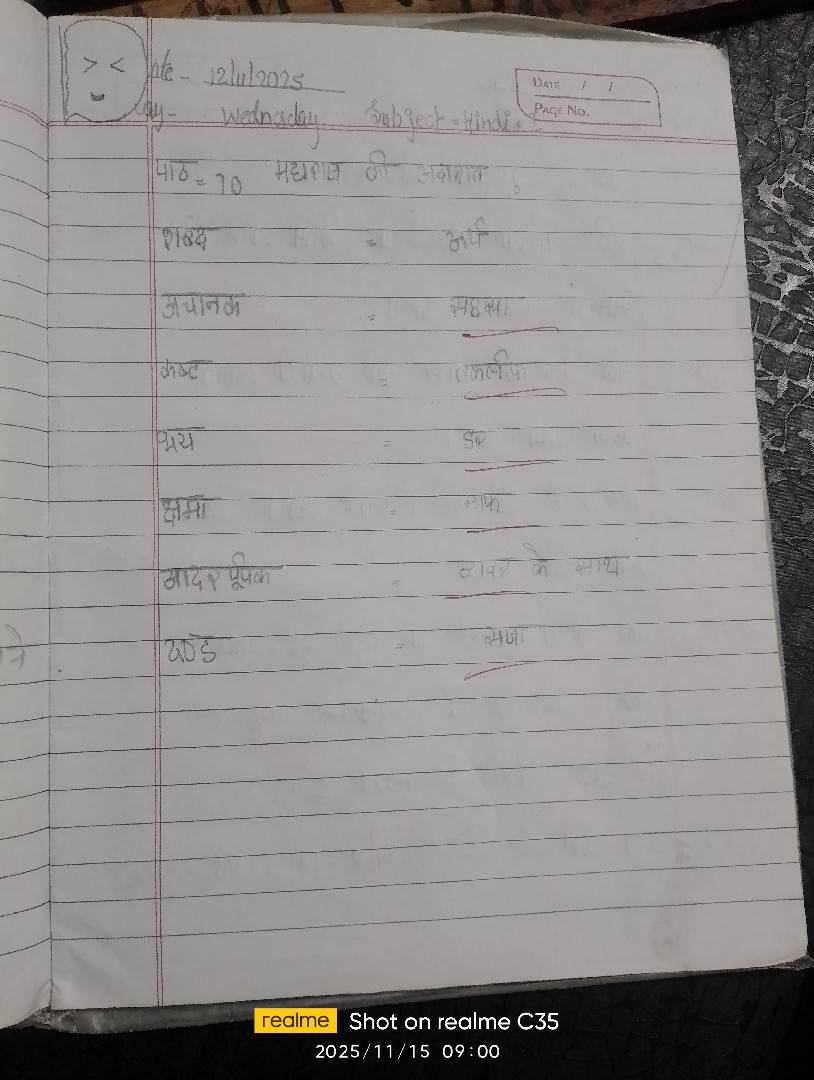 Date - 12/11/2025
DATE / /
Day- Wednaday Subject = Hindi
PAGE No.
पाठ = 10 महाराज की
शब्द = अर्थ
अचानक = सहसा
कष्ट = तकलीफ
भय = डर
क्षमा = माफ
आदरपूर्वक = आदर के साथ
दण्ड = सजा
realme Shot on realme C35
2025/11/15 09:00